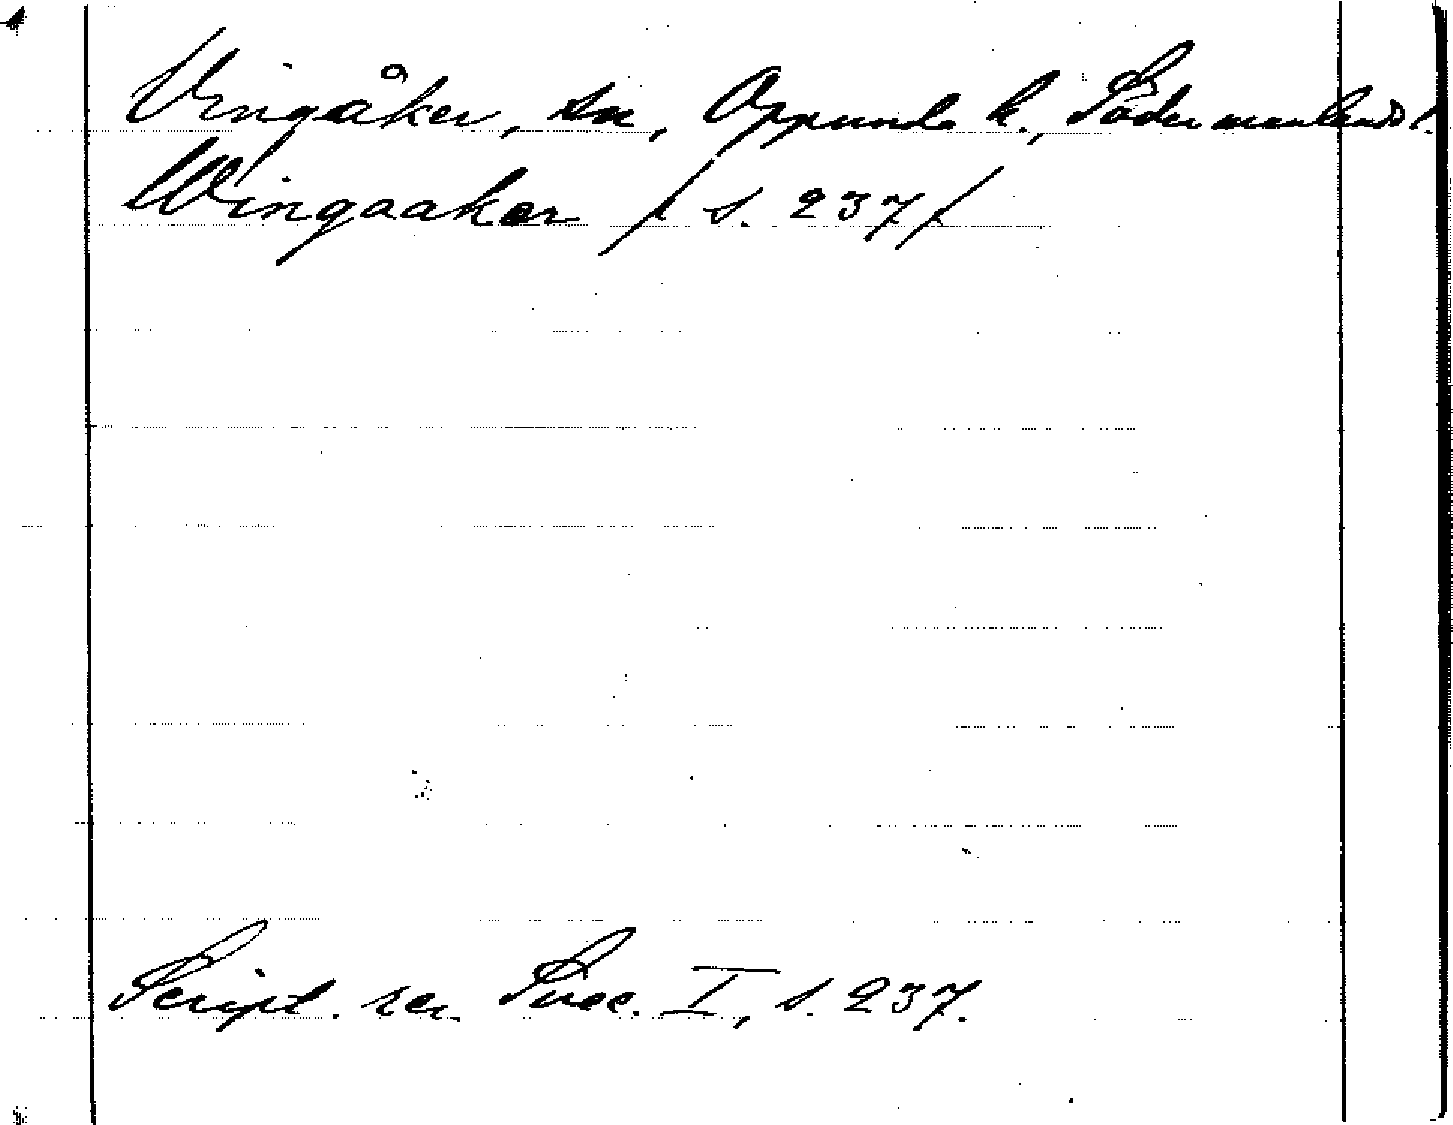 Vingåker, sn, Oppunda h., Södermanlands l.
Wingaaker / s. 237/
Script. rer. Suec. I, s. 237.